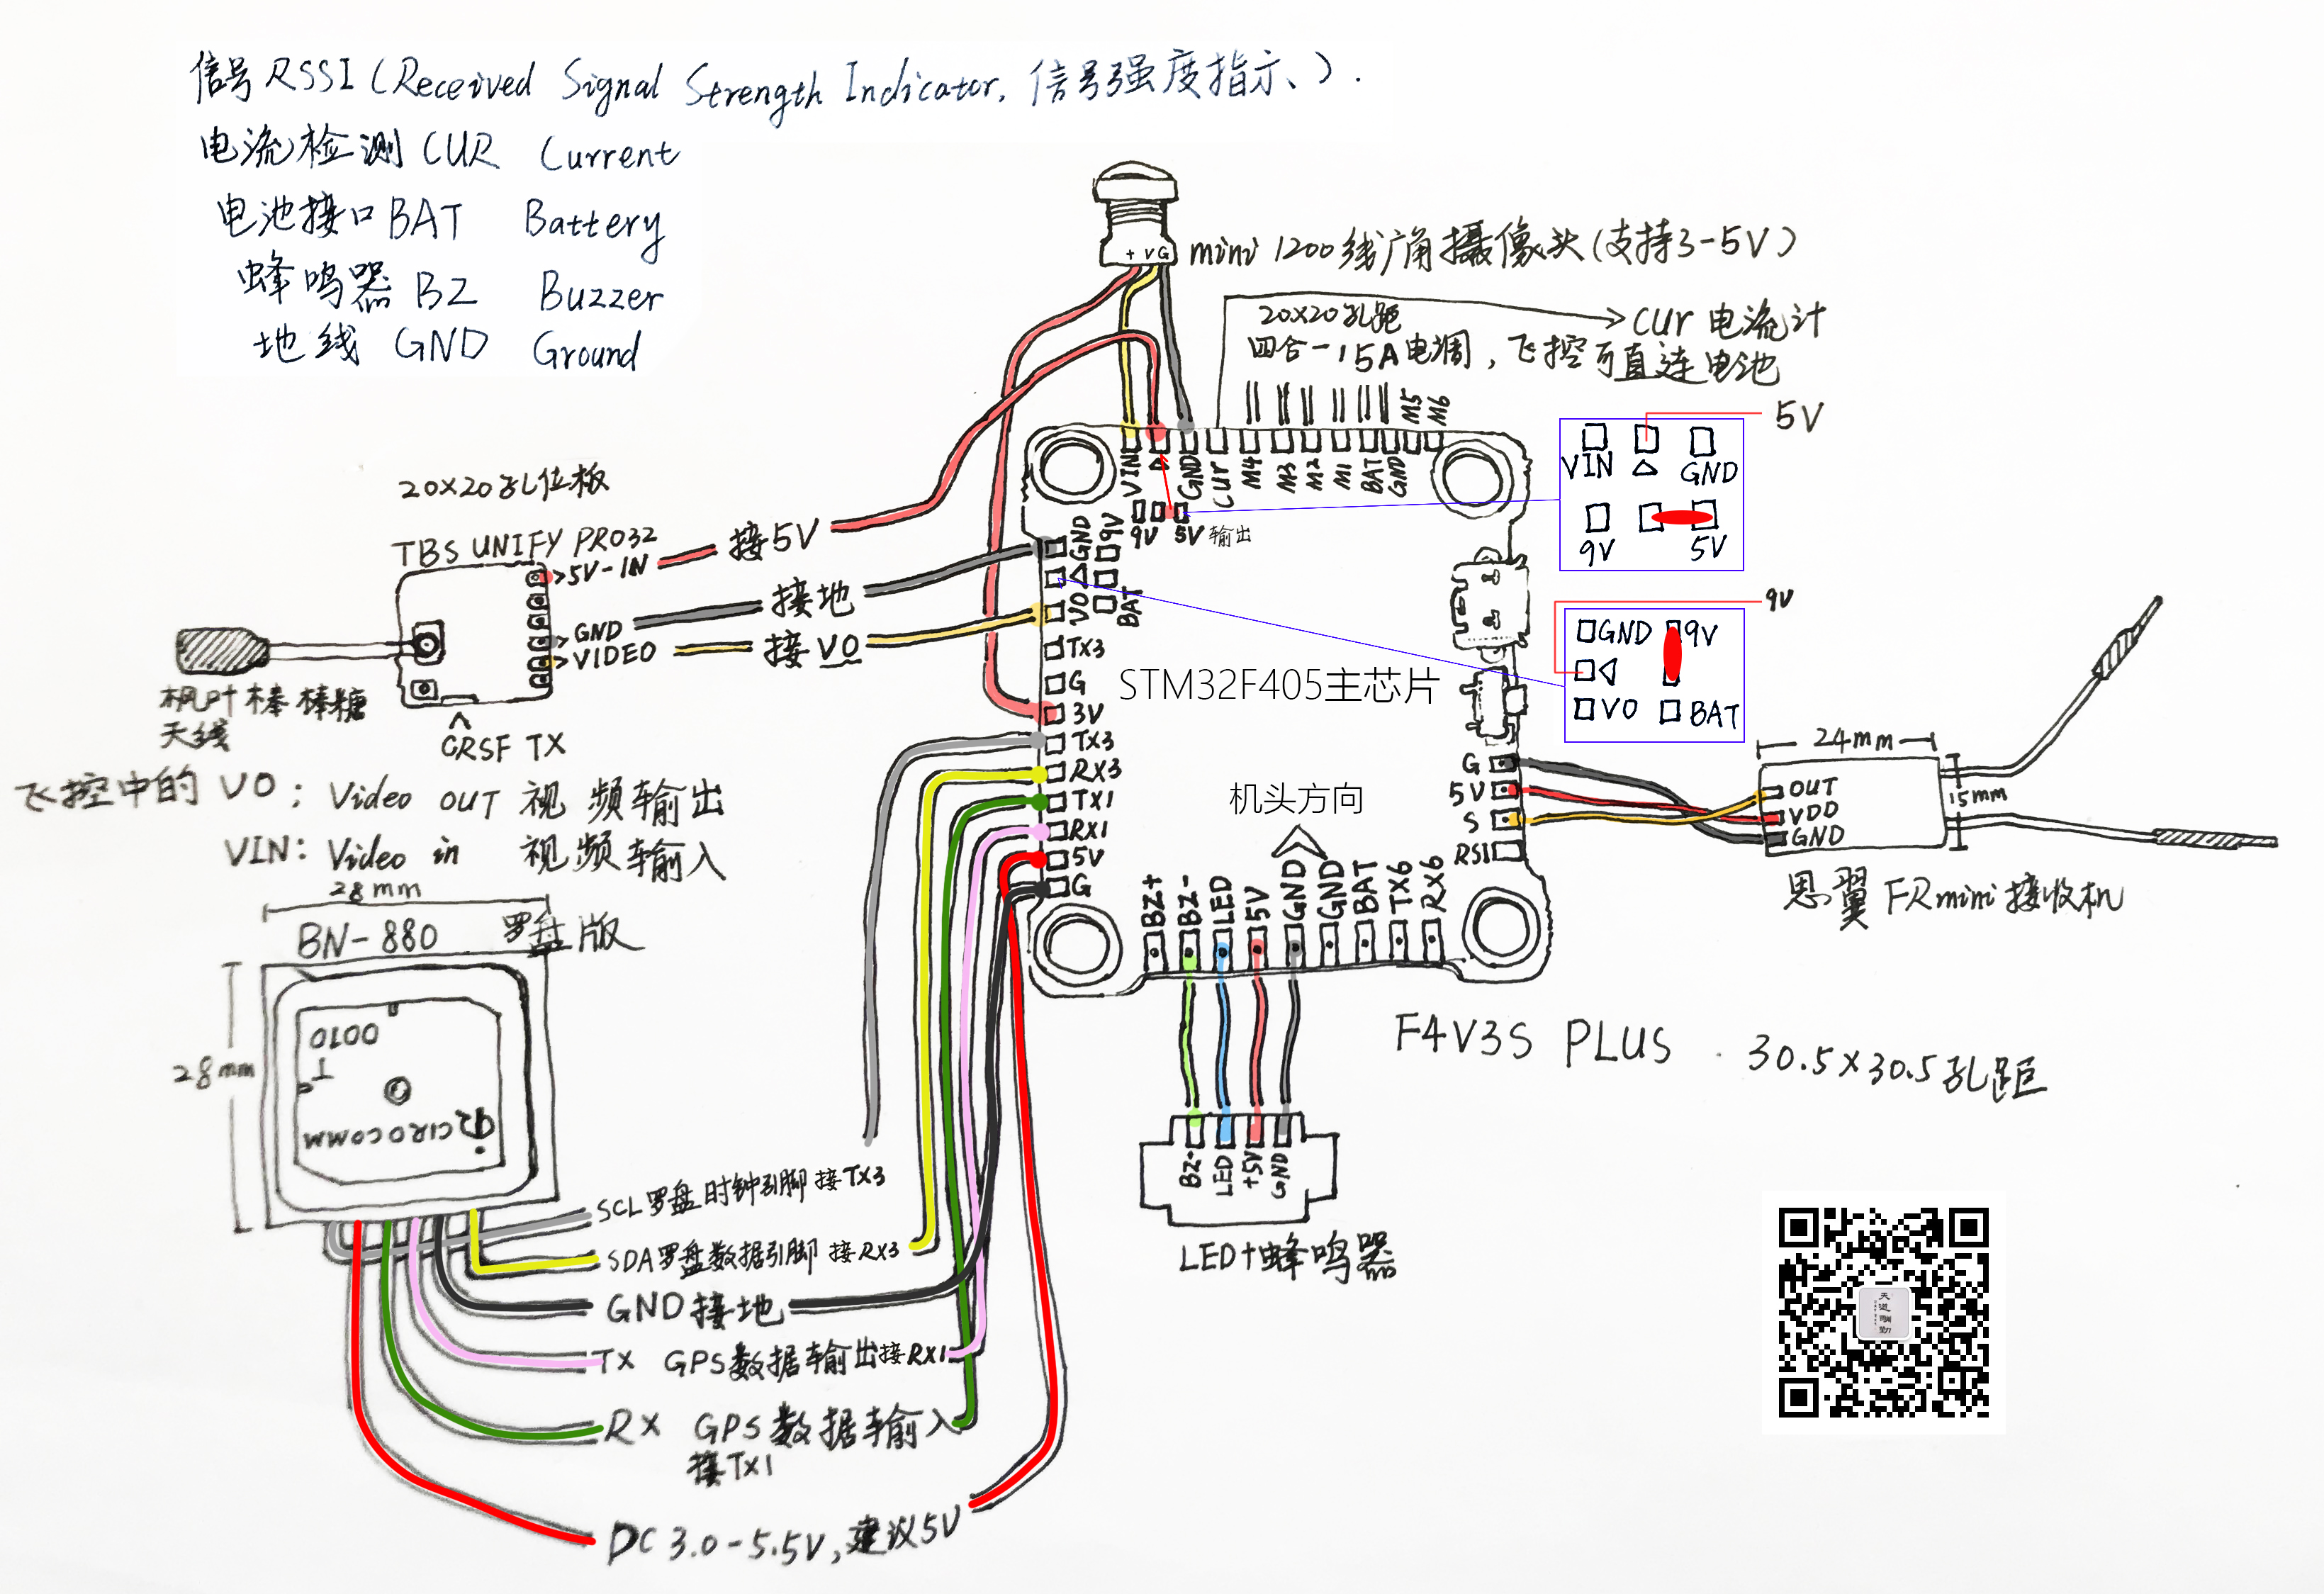 信号RSSI(Received Signal Strength Indicator, 信号强度指示、).
电流检测CUR Current
电池接口BAT Battery
蜂鸣器BZ Buzzer
地线GND Ground
+ V G
mini 1200线广角摄像头(支持3-5V)
20X20孔距
四合一15A电调,飞控可直连电池
CUR 电流计
VIN
△
GND
CUR
M4
M3
M2
M1
BAT
GND
M5
M6
9V
5V 输出
5V
VIN △ GND
9V 5V
9V
GND 9V
◁
VO BAT
20X20孔位板
TBS UNIFY PRO32
>5V-IN
>GND
>VIDEO
接5V
接地
接VO
枫叶棒棒糖
天线
CRSF TX
GND
△
VO
9V
BAT
TX3
G
3V
TX3
RX3
TX1
RX1
5V
G
STM32F405主芯片
机头方向
G
5V
S
RSI
BZ+
BZ-
LED
5V
GND
GND
BAT
TX6
RX6
24mm
15mm
OUT
VDD
GND
思翼 FRmini接收机
飞控中的VO: Video OUT 视频输出
VIN: Video in 视频输入
28mm
BN-880 罗盘版
28mm
0100
T
CIROCOMM
F4V3S PLUS 30.5X30.5孔距
BZ-
LED
+5V
GND
LED+蜂鸣器
SCL罗盘时钟引脚 接TX3
SDA罗盘数据引脚 接RX3
GND接地
TX GPS数据输出接RX1
RX GPS数据输入
接TX1
DC 3.0-5.5V,建议5V
天道酬勤